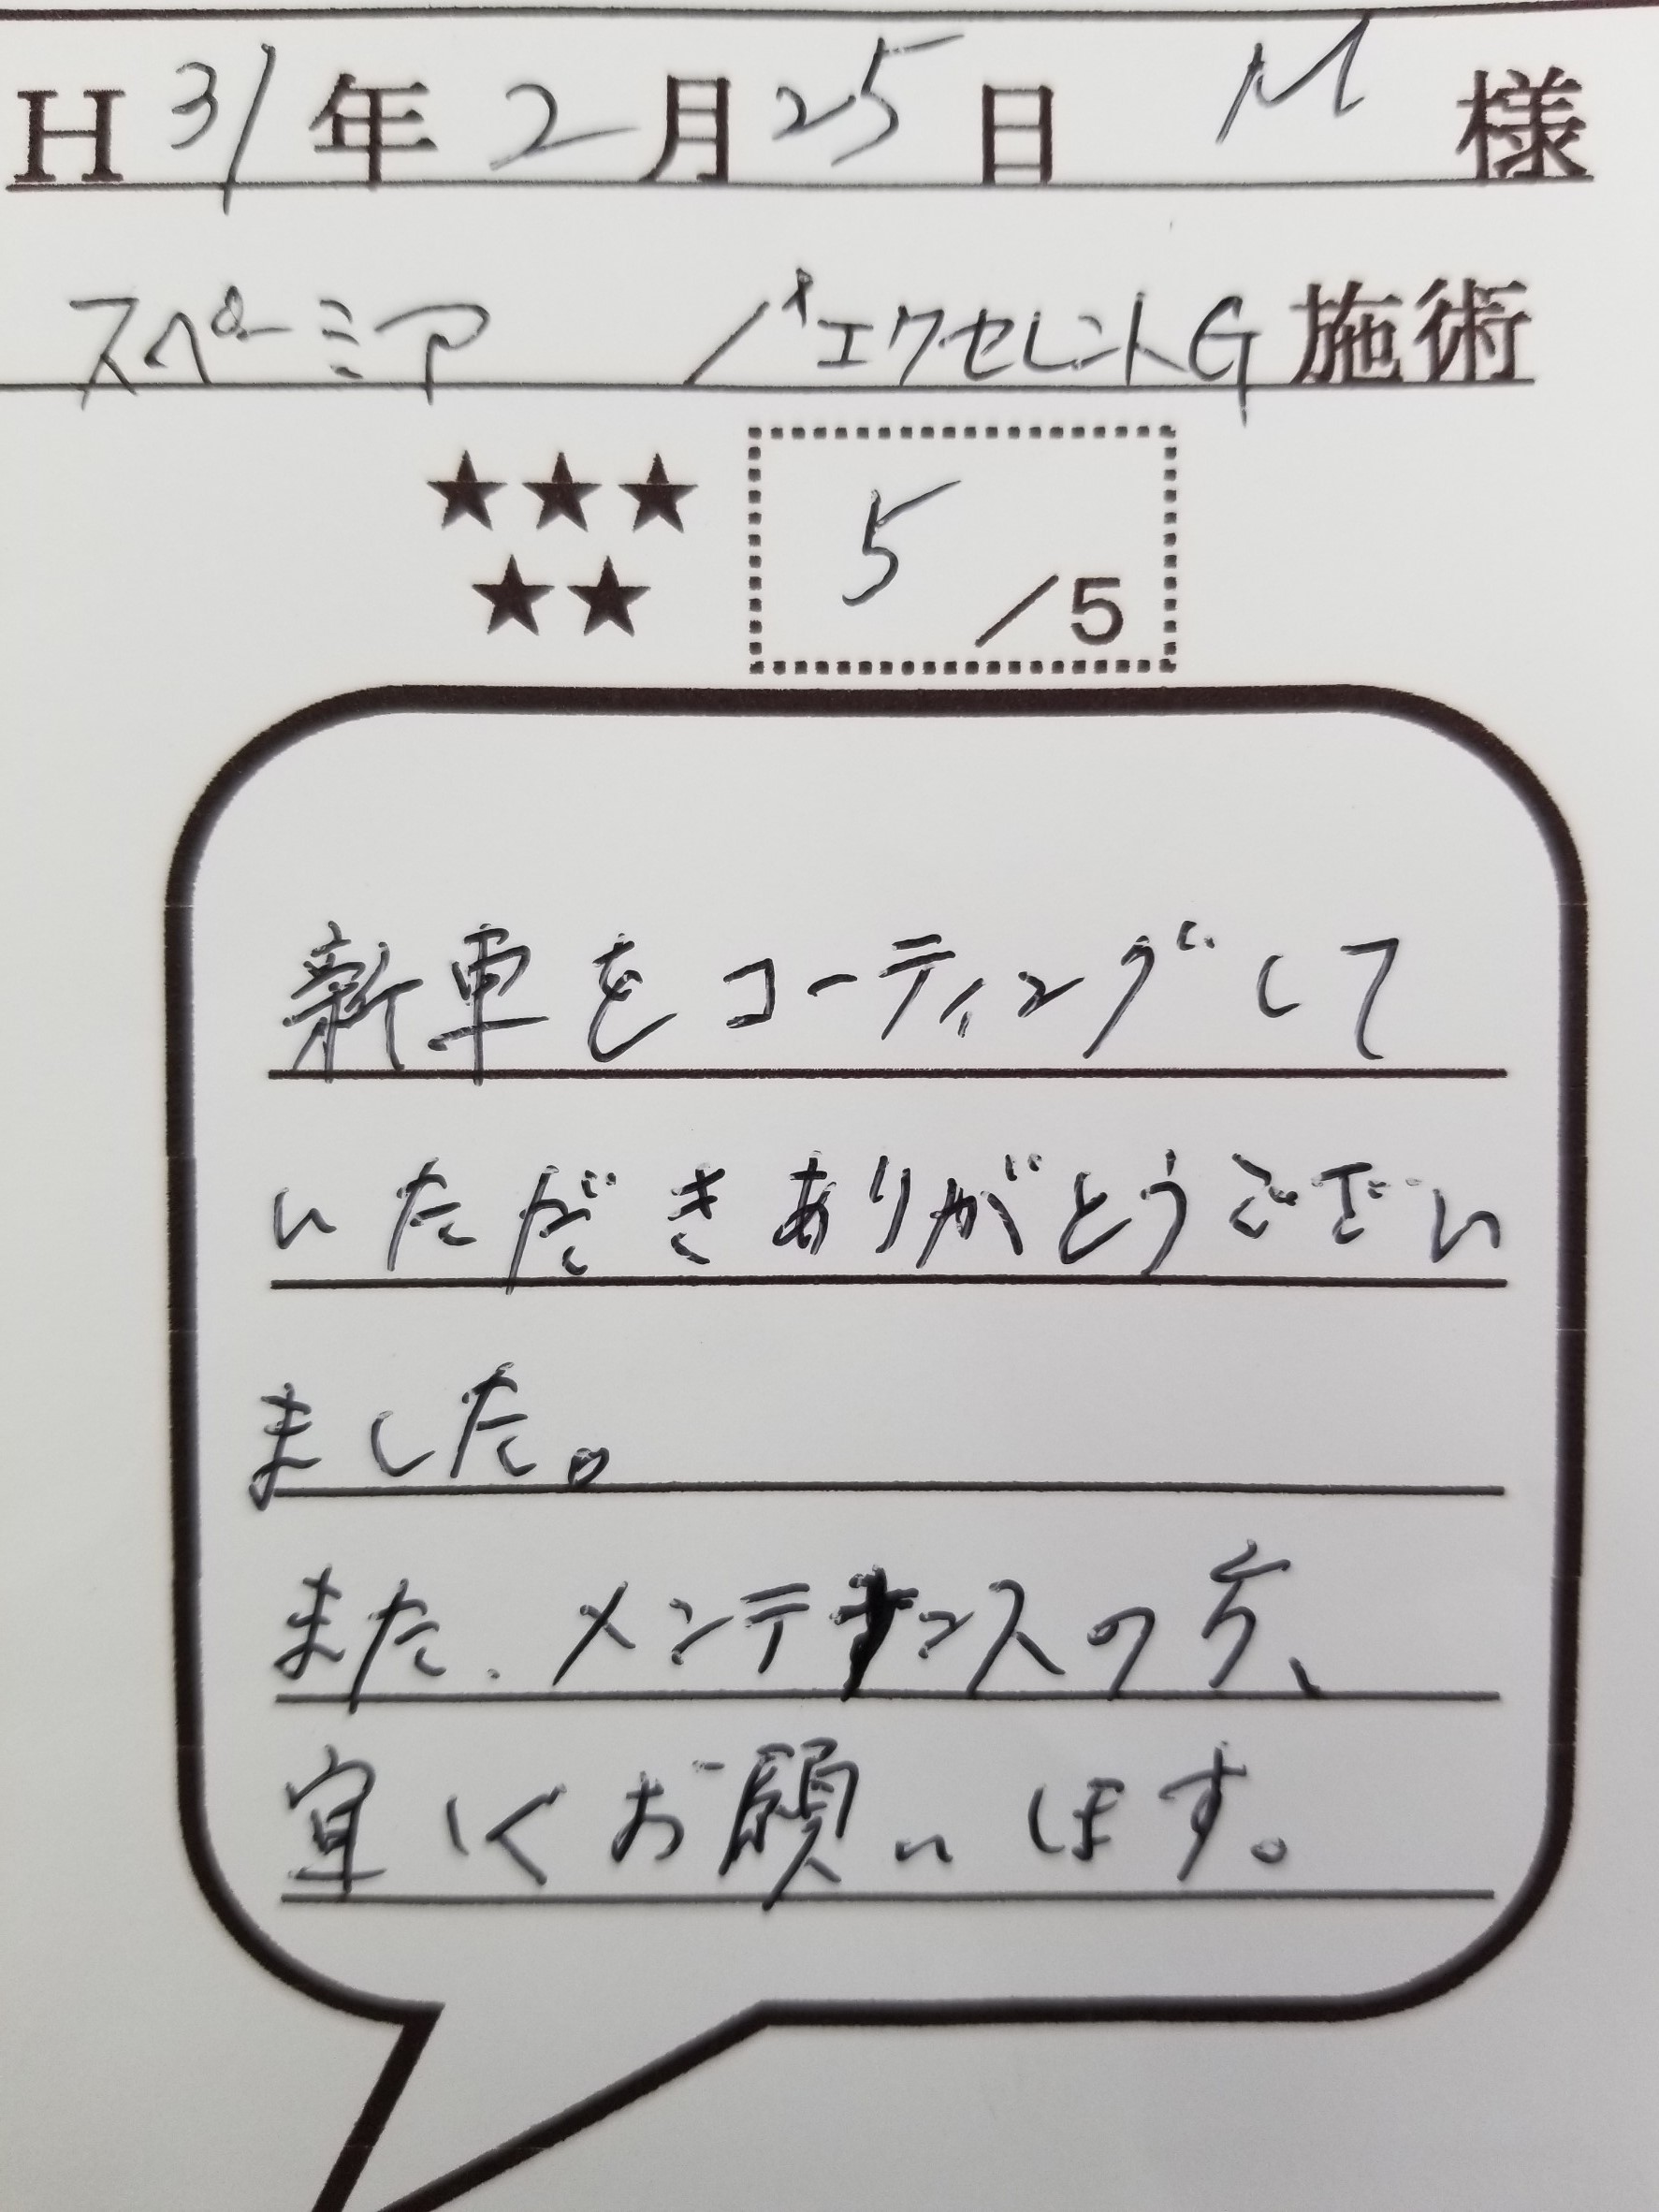 H31年2月25日 M様
スペーシア /エクセレントG施術
★★★
★★
5/5
新車をコーティングして
いただきありがとうござい
ました。
また、メンテナンスの方、
宜しくお願いします。